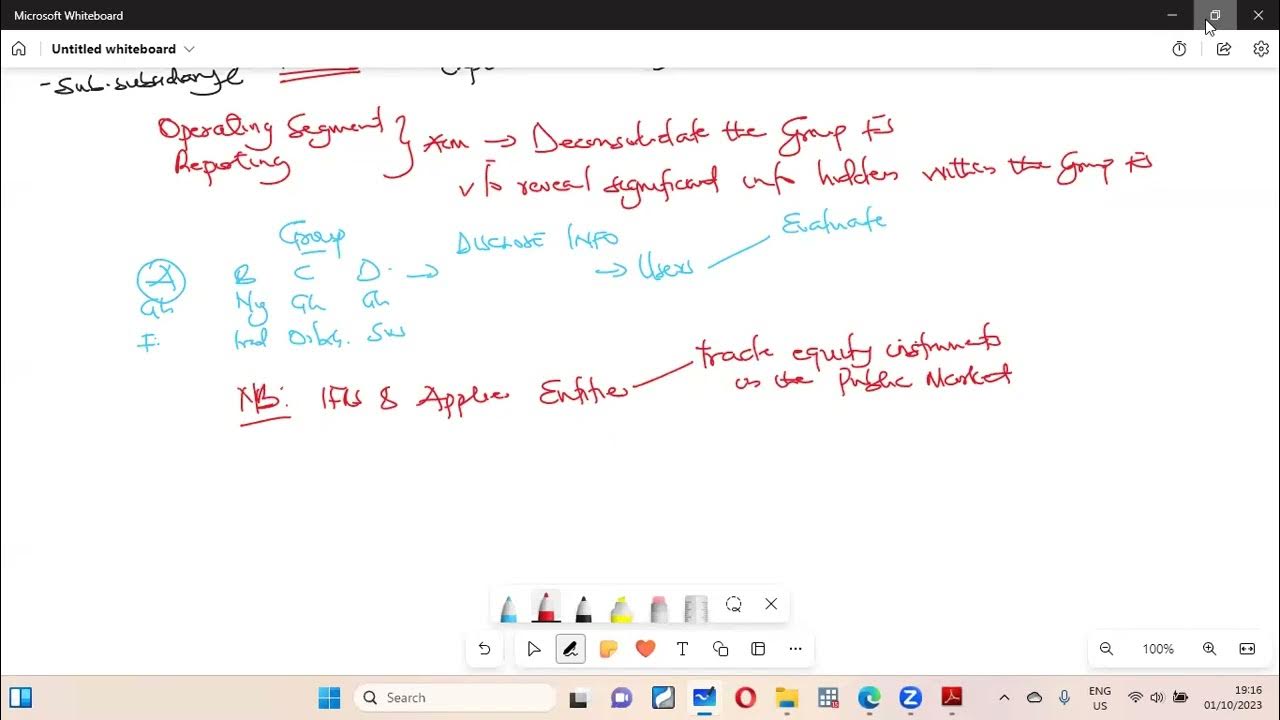 Microsoft Whiteboard
Untitled whiteboard
- Sub-subsidiary
Operating Segment
Reporting
→ Deconsolidate the Group FS
To reveal significant info hidden within the Group FS
Group
DISCLOSE INFO
Evaluate
A B C D → → Users
Gh Ng Gh Gh
NB: IFRS 8 Applies Entities
trade equity instruments
in the Public Market
100%
Search
ENG
US
19:16
01/10/2023